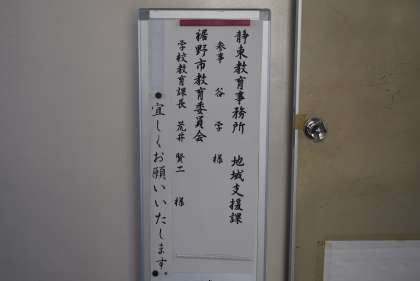 静東教育事務所 地域支援課
参事 谷 学 様
裾野市教育委員会
学校教育課長 荒井 賢二 様
宜しくお願いいたします